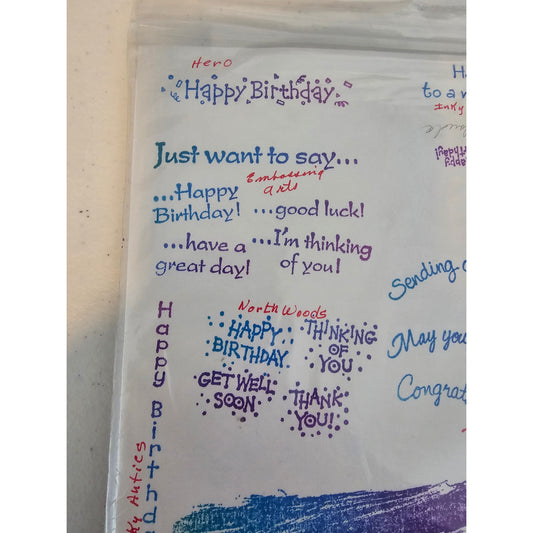 Hero
Happy Birthday
Just want to say...
Embossing
arts
...Happy
Birthday!
...good luck!
...have a
great day!
...I'm thinking
of you!
Happy Birthda
ky Antics
North Woods
HAPPY
BIRTHDAY
THINKING
OF
YOU
GET WELL
SOON
THANK
YOU!
H
to a
Inky
Sending
May you
Congrat